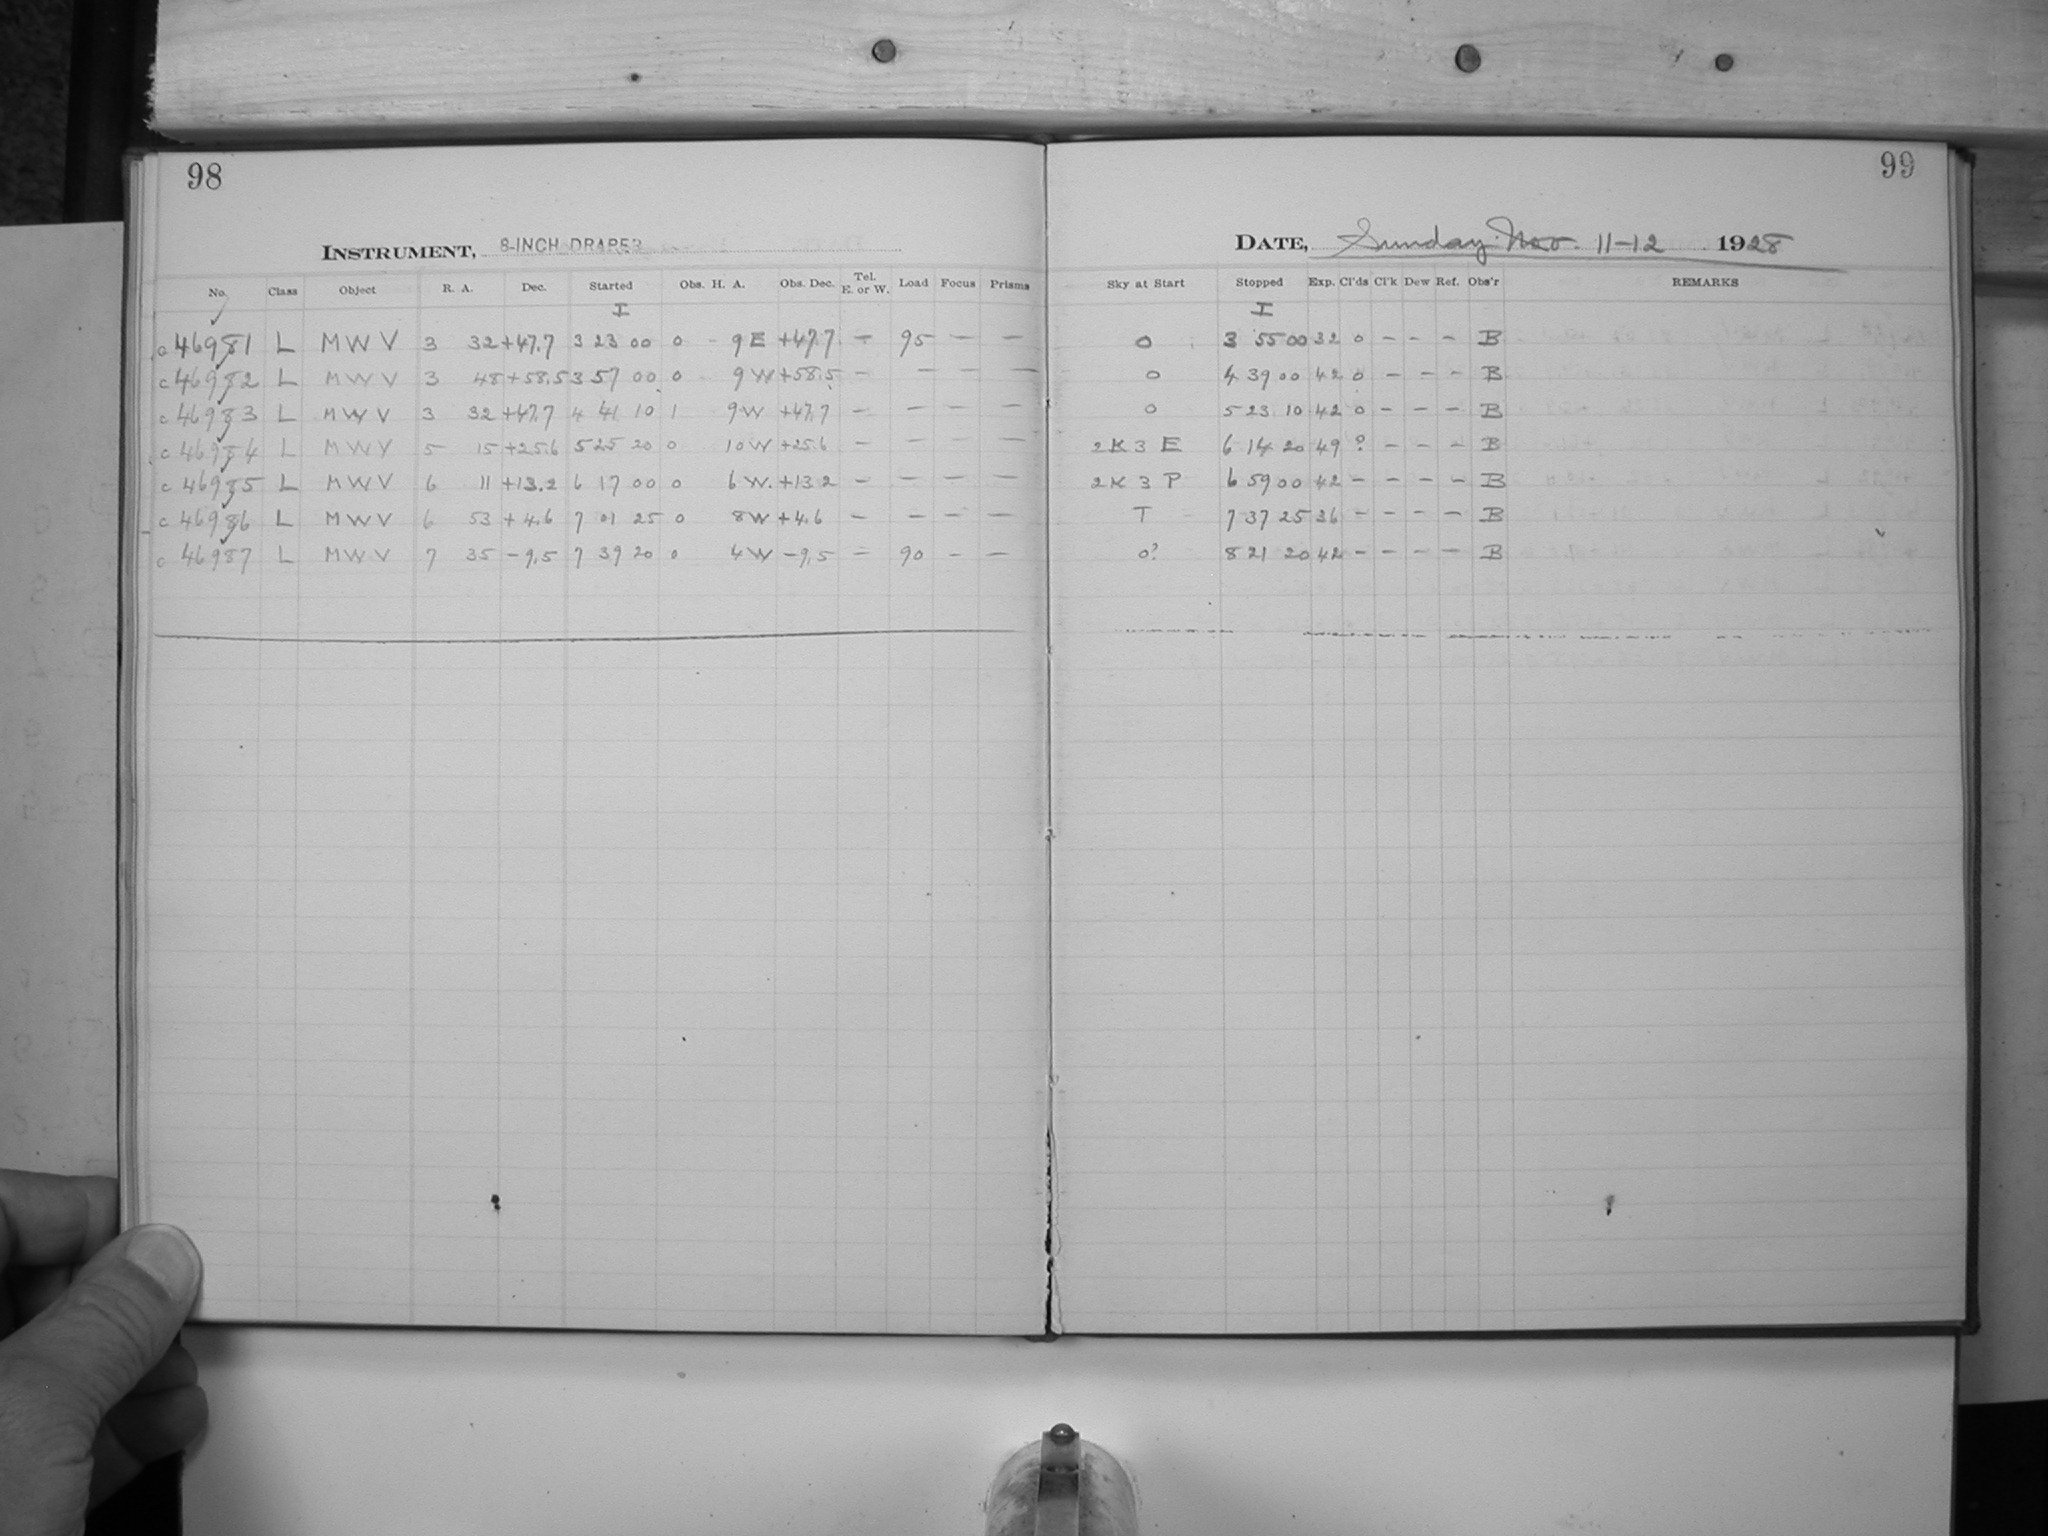 98
INSTRUMENT, 8-INCH DRAPER
No. Class Object R. A. Dec. Started Obs. H. A. Obs. Dec. Tel. E. or W. Load Focus Prisms
I
c 46981 L MWV 3 32 +47.7 3 23 00 0 9 E +47.7 — 95 — —
c 46982 L MWV 3 48 +58.5 3 57 00 0 9 W +58.5 — — — —
c 46983 L MWV 3 32 +47.7 4 41 10 1 9 W +47.7 — — — —
c 46984 L MWV 5 15 +25.6 5 25 20 0 10 W +25.6 — — — —
c 46985 L MWV 6 11 +13.2 6 17 00 0 6 W. +13.2 — — — —
c 46986 L MWV 6 53 +4.6 7 01 25 0 8 W +4.6 — — — —
c 46987 L MWV 7 35 -9.5 7 39 20 0 4 W -9.5 — 90 — —
99
DATE, Sunday Nov. 11-12 1928
Sky at Start Stopped Exp. Cl'ds Cl'k Dew Ref. Obs'r REMARKS
I
0 3 55 00 32 0 — — — B
0 4 39 00 42 0 — — — B
0 5 23 10 42 0 — — — B
2K3 E 6 14 20 49 ? — — — B
2K3 P 6 59 00 42 — — — — B
T 7 37 25 36 — — — — B
0? 8 21 20 42 — — — — B